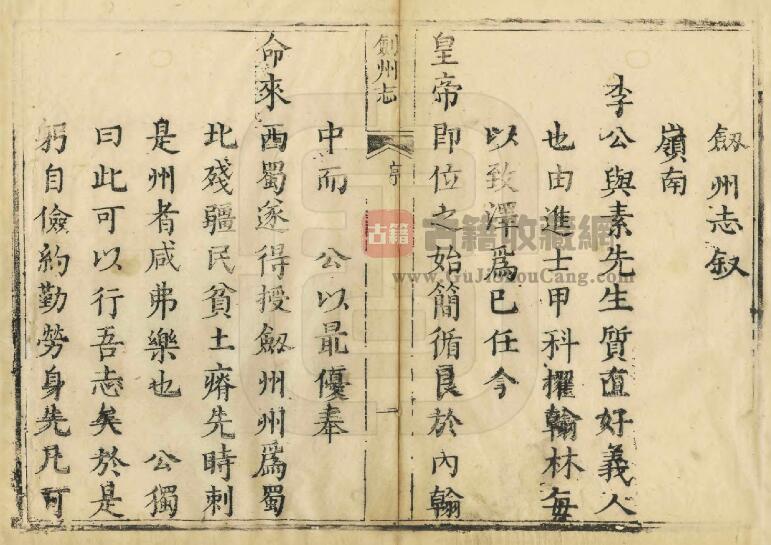 劔州志叙
嶺南
李公與素先生質直好義人
也由進士甲科擢翰林每
以致澤爲已任今
皇帝即位之始簡循良於內翰
劍州志
序
一
中而　公以最優奉
命來西蜀遂得授劔州州爲蜀
北殘疆民貧土瘠先時刺
是州者咸弗樂也　公獨
曰此可以行吾志矣於是
躬自儉約勤勞身先凡可
古籍
古籍收藏網
www.GuJiShouCang.com